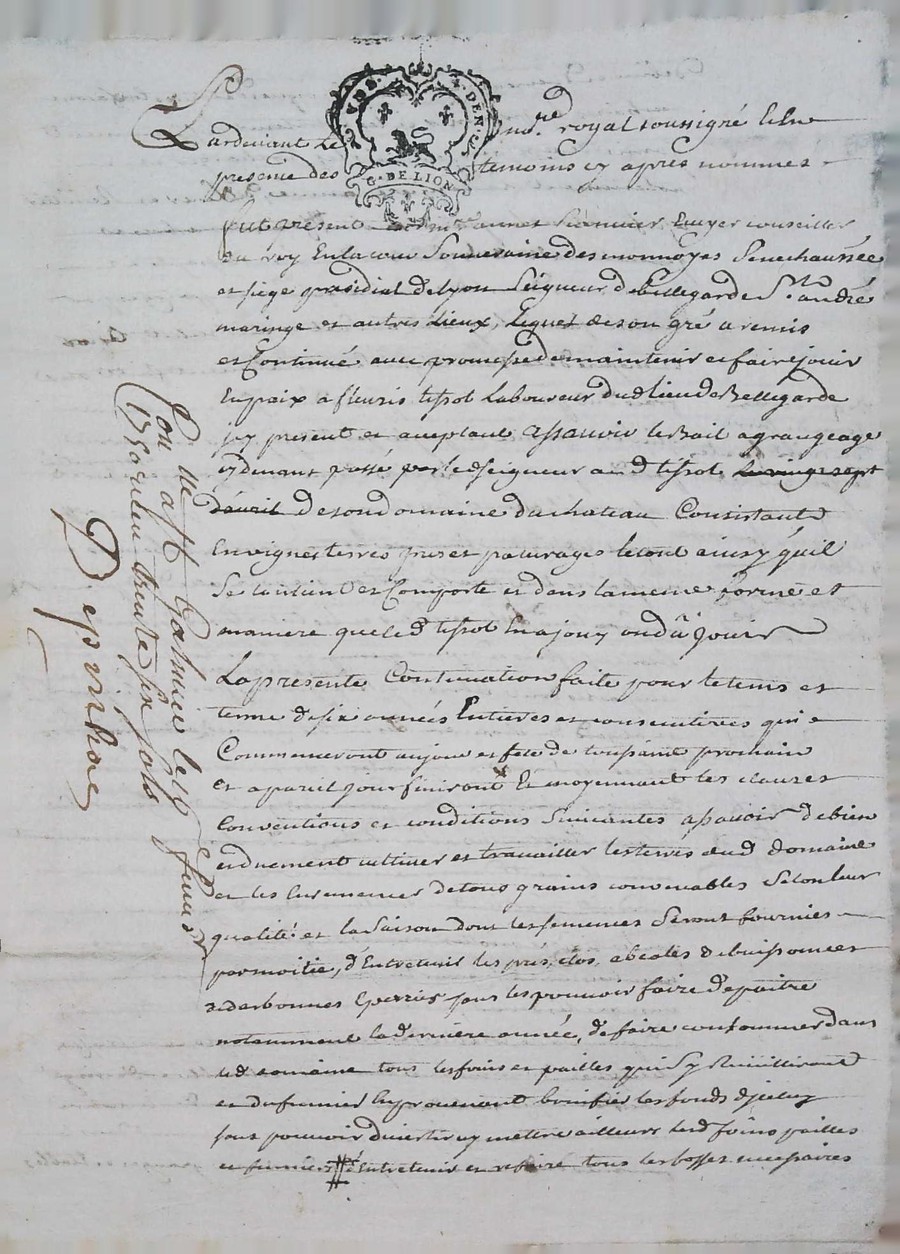 VNS. 4. DEN. S
G. DE LION
Pardevant Le no.re royal soussigné et En
presence des temoins cy apres nommes
fut present annet Ecuyer conseiller
du roy En la cour Souveraine des monnoyes Senechaussée
et siege presidial de lyon Seigneur de bellegarde St. andré
maringe et autres Lieux, Lequel de son gré a remis
et Continué avec promesse de maintenir et faire jouir
En paix a fleuris tissot Laboureur dud lieu de Bellegarde
icy present et acceptant assavoir le Bail a grangeage
cydevant passé par led seigneur aud tissot le vingt sept
davril de son domaine du chateau Consistant
En vignes terres pres et paturages le tout ainsy qu'il
Se contient et Comporte et dans la meme forme et
maniere que led tissot En a jouy ou dû jouir
La presente Continuation faite pour le tems et
terme de six années Entieres et consecutives qui
Commenceront au jour et fete de toussaint prochain
et a pareil jour finiront Et moyennant les clauses
Conventions et conditions Suivantes assavoir de bien
et duement cultiver et travailler les terres dud domaine
et les Ensemencer de tous grains convenables Selon leur
qualité et la Saison dont les semences Seront fournies
par moitié, d'Entretenir les prés clos, de buissonnees
sans les pouvoir faire depaitre
notamment la derniere année, de faire consommer dans
led domaine tous les foins et pailles qui Sy Recuilliront
et du fumier En provenant bonifier les fonds djceluy
sans pouvoir divertir ny mettre ailleurs lesd foins pailles
et fumiers # Entretenir et refaire tous les fosses necessaires
Con.lle a St Galmier le 19 fevrier
1750 trente six sols